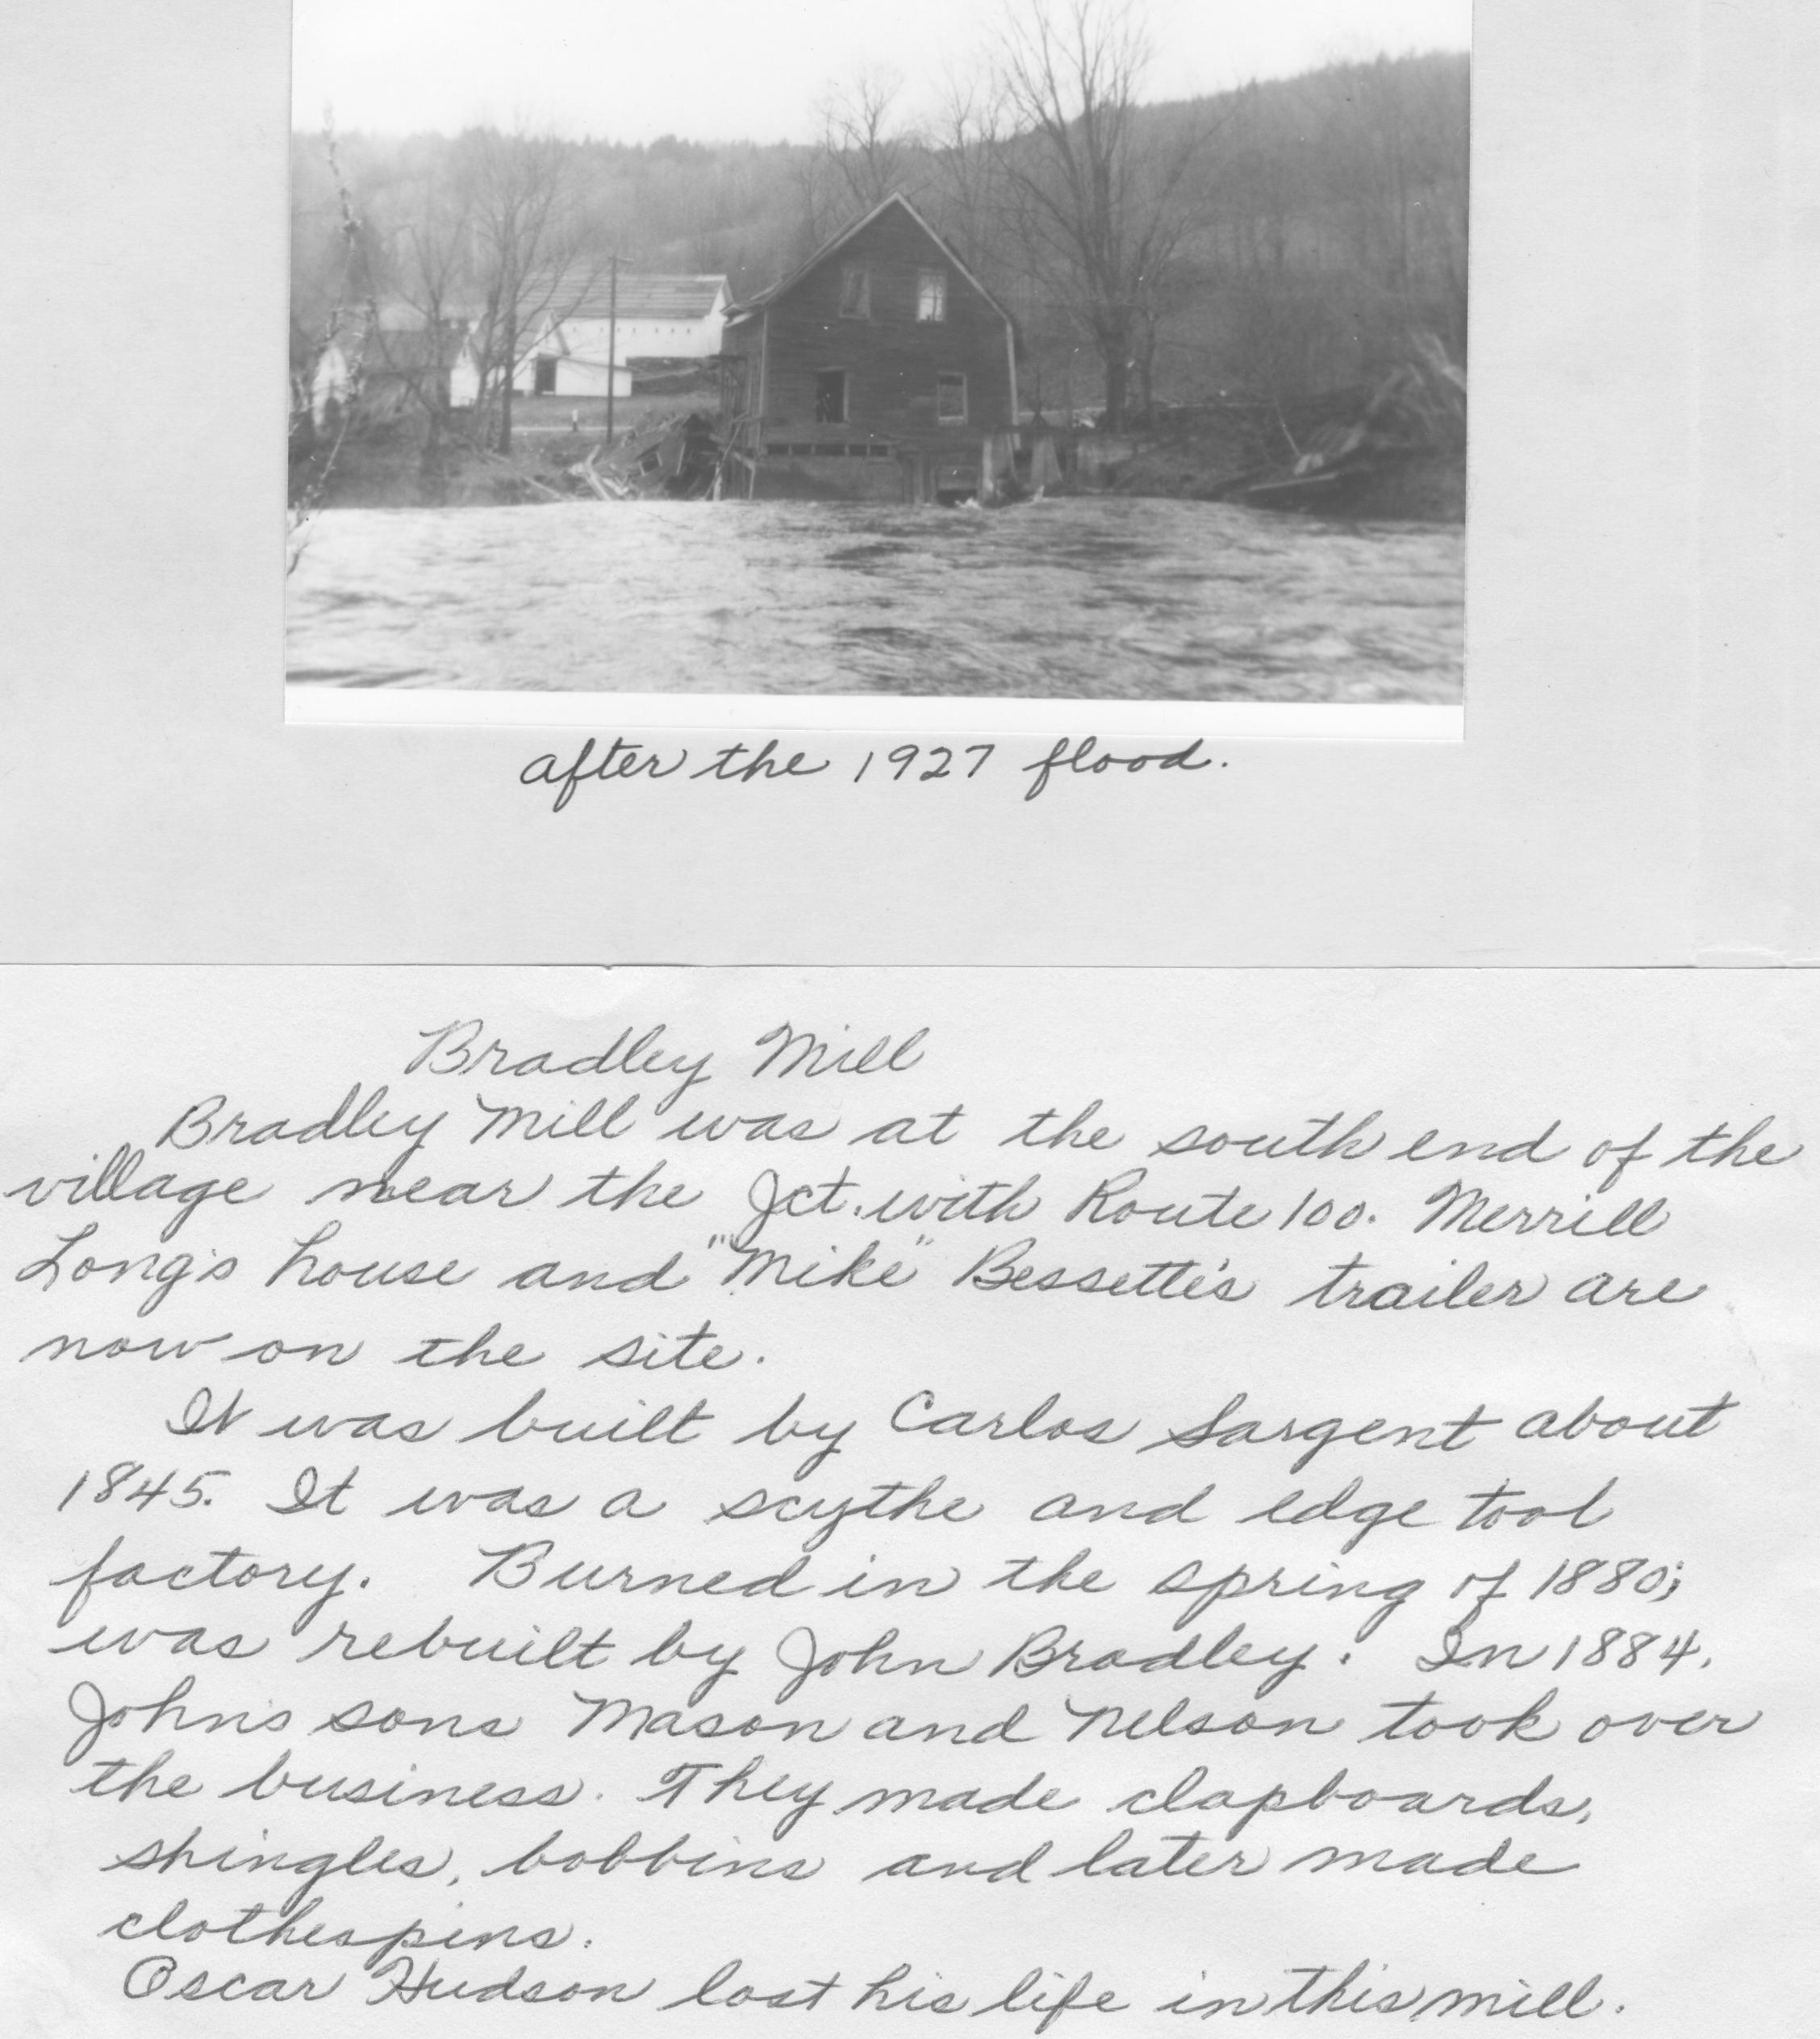 after the 1927 flood.
Bradley Mill
Bradley Mill was at the south end of the
village near the Jct. with Route 100. Merrill
Long's house and "Mike" Bessette's trailer are
now on the site.
It was built by Carlos Sargent about
1845. It was a scythe and edge tool
factory. Burned in the spring of 1880;
was rebuilt by John Bradley. In 1884,
John's sons Mason and Nelson took over
the business. They made clapboards,
shingles, bobbins and later made
clothespins.
Oscar Hudson lost his life in this mill.